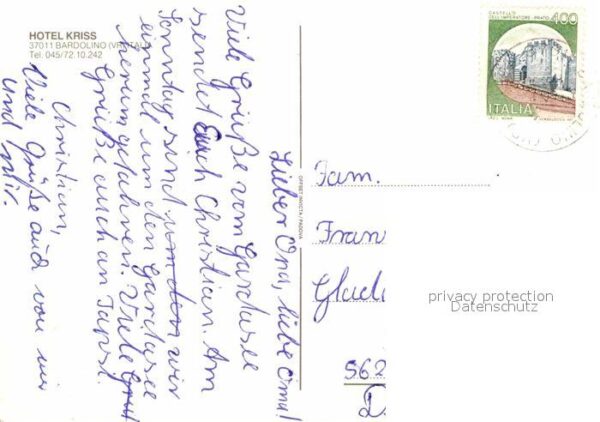 HOTEL KRISS
37011 BARDOLINO (VR) ITALIA
Tel. 045/72.10.242
Lieber Opa, liebe Oma!
Viele Grüße vom Gardasee
sendet Euch Christian. Am
Sonntag sind von dem wir
einmal um den Gardasee
herumgefahren. Viele Grüß
Grüße auch an Tapsi.
Christian,
Viele Grüße auch von mir
und
OFFSET INVICTA / PADOVA
CASTELLO
DELL'IMPERATORE - PRATO
400
ITALIA
Fam.
Fran
Glad
562
privacy protection
Datenschutz